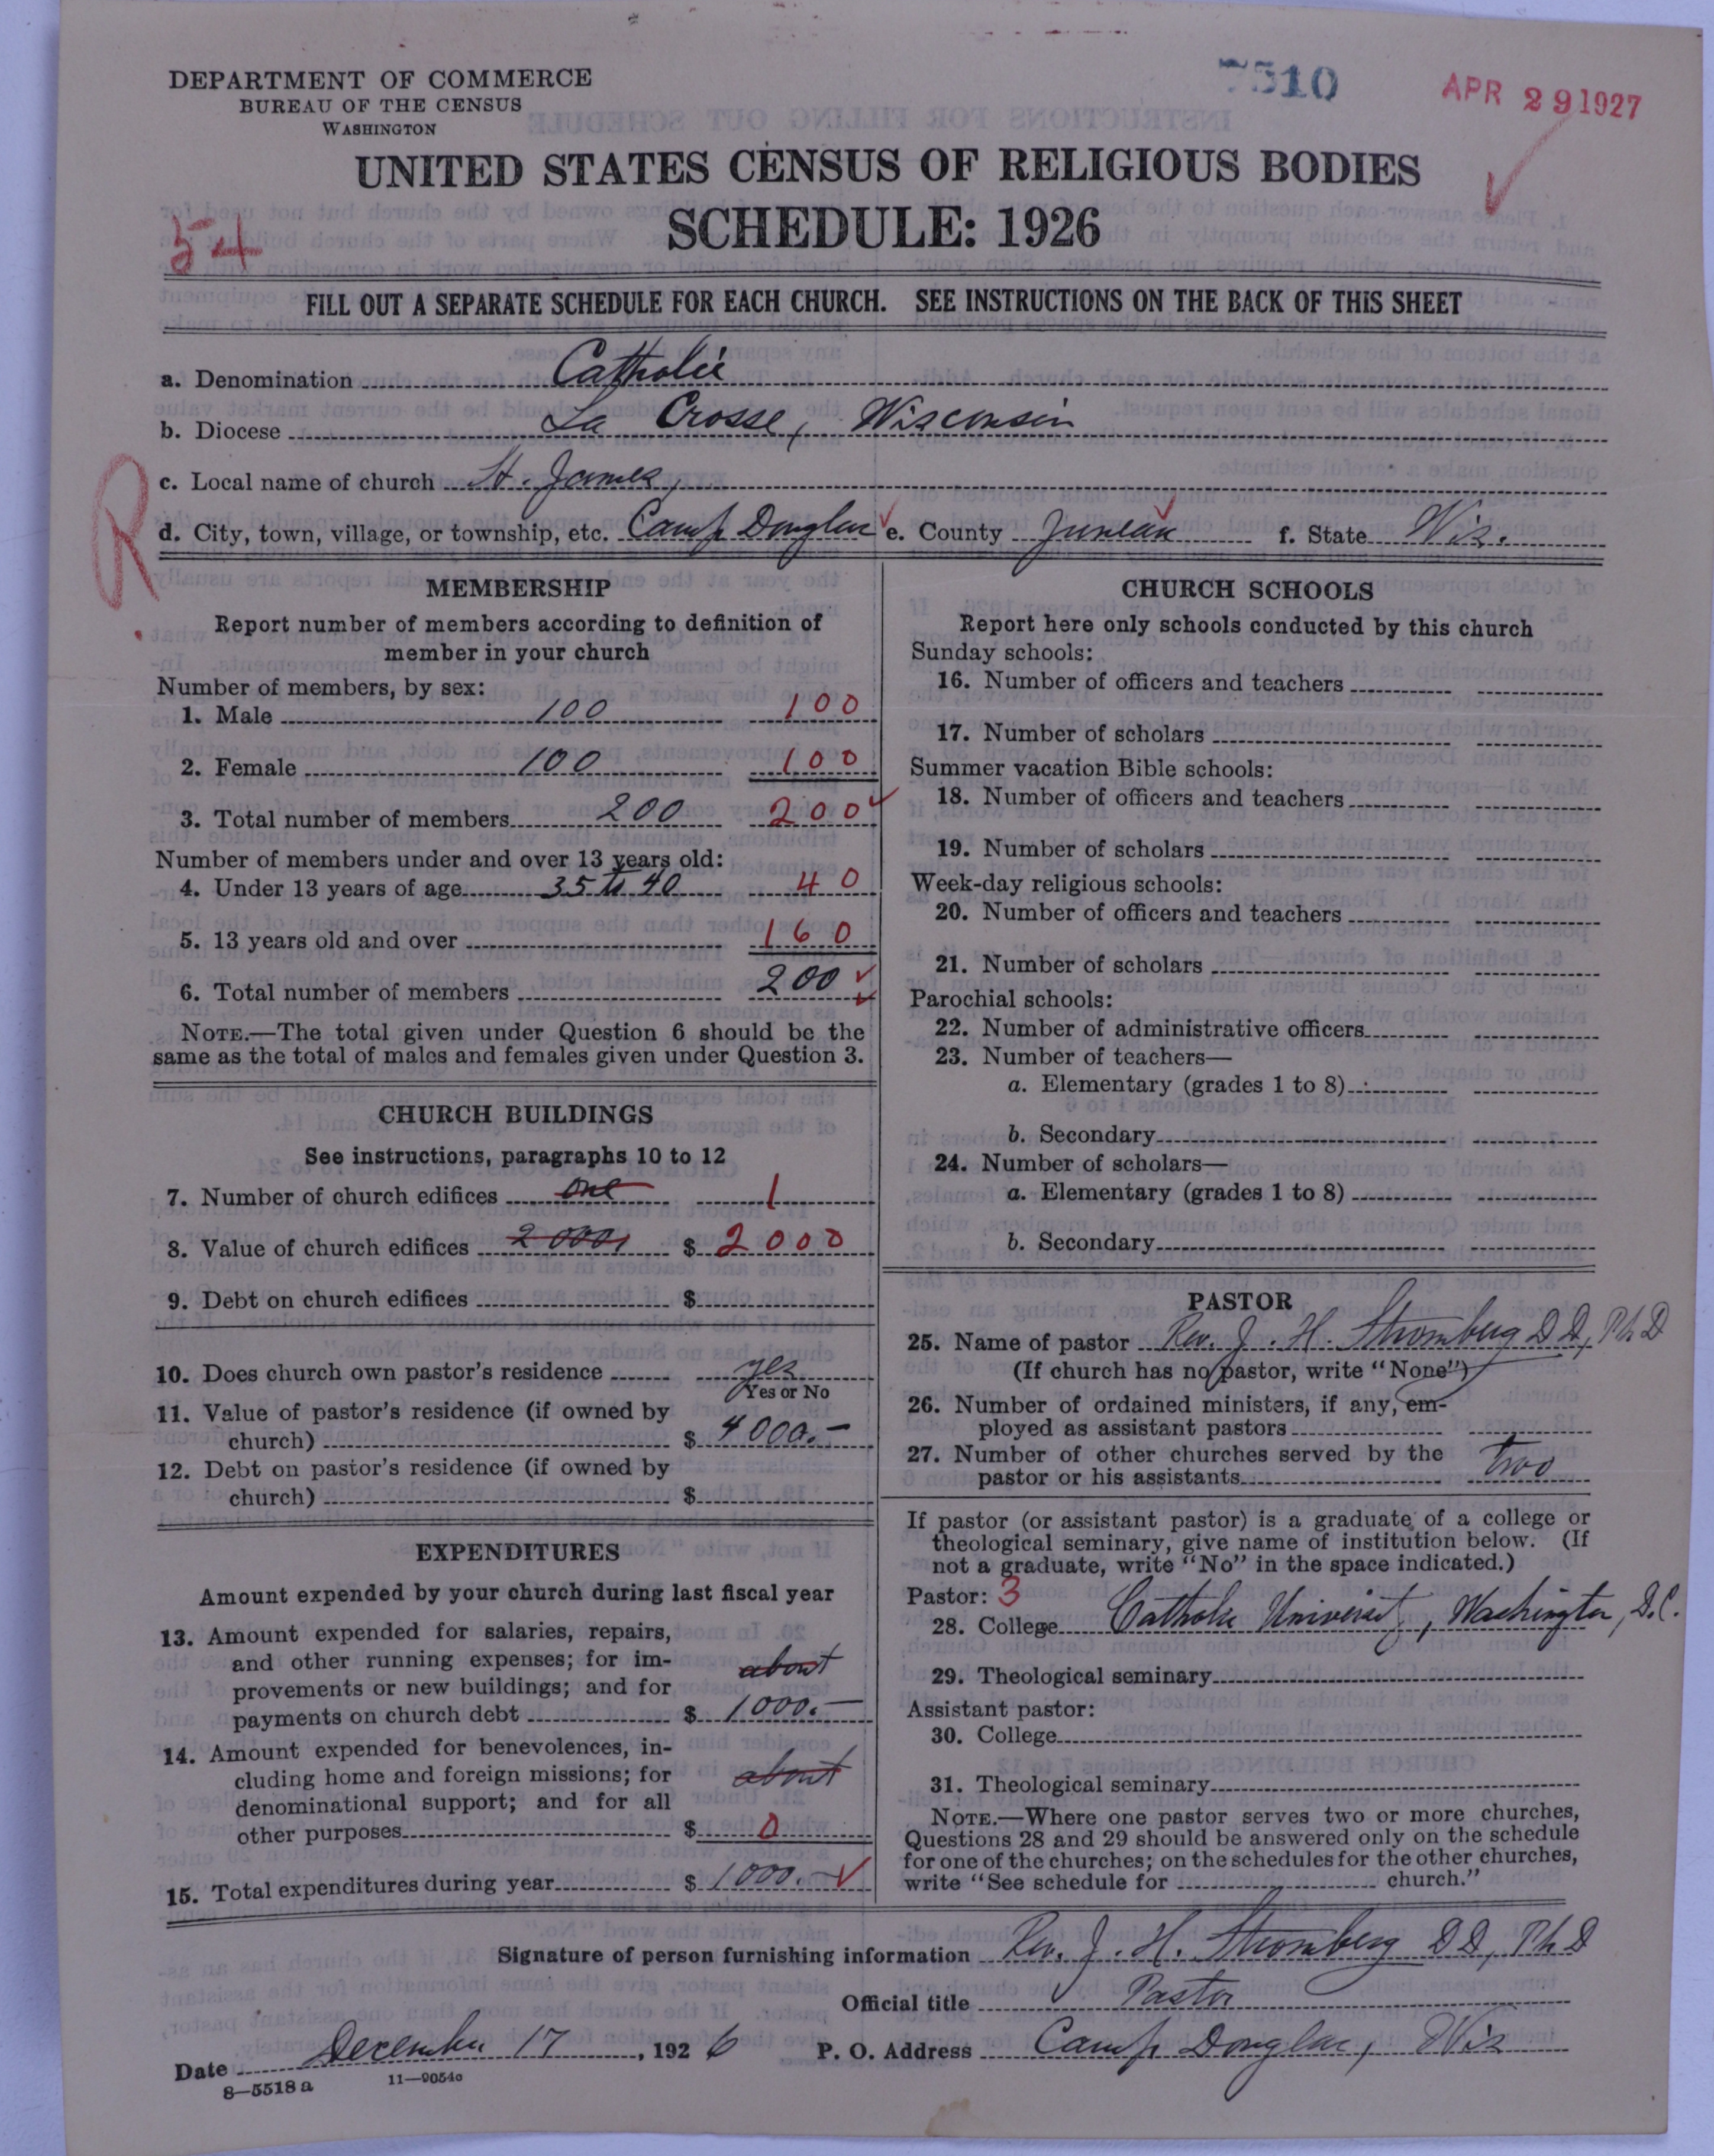 DEPARTMENT OF COMMERCE
BUREAU OF THE CENSUS
WASHINGTON
7510
APR 29 1927
UNITED STATES CENSUS OF RELIGIOUS BODIES
SCHEDULE: 1926
54
FILL OUT A SEPARATE SCHEDULE FOR EACH CHURCH. SEE INSTRUCTIONS ON THE BACK OF THIS SHEET
a. Denomination Catholic
b. Diocese La Crosse, Wisconsin
c. Local name of church St. James,
R
d. City, town, village, or township, etc. Camp Douglas e. County Juneau f. State Wis.
MEMBERSHIP
Report number of members according to definition of
member in your church
Number of members, by sex:
1. Male 100 100
2. Female 100 100
3. Total number of members 200 200
Number of members under and over 13 years old:
4. Under 13 years of age 35 to 40 40
5. 13 years old and over 160
6. Total number of members 200
NOTE.—The total given under Question 6 should be the
same as the total of males and females given under Question 3.
CHURCH BUILDINGS
See instructions, paragraphs 10 to 12
7. Number of church edifices one 1
8. Value of church edifices 2000, $ 2000
9. Debt on church edifices $
10. Does church own pastor's residence yes
Yes or No
11. Value of pastor's residence (if owned by
church) $ 4000.–
12. Debt on pastor's residence (if owned by
church) $
EXPENDITURES
Amount expended by your church during last fiscal year
13. Amount expended for salaries, repairs,
and other running expenses; for im-
provements or new buildings; and for about
payments on church debt $ 1000.–
14. Amount expended for benevolences, in-
cluding home and foreign missions; for about
denominational support; and for all
other purposes $ 0
15. Total expenditures during year $ 1000.–
CHURCH SCHOOLS
Report here only schools conducted by this church
Sunday schools:
16. Number of officers and teachers
17. Number of scholars
Summer vacation Bible schools:
18. Number of officers and teachers
19. Number of scholars
Week-day religious schools:
20. Number of officers and teachers
21. Number of scholars
Parochial schools:
22. Number of administrative officers
23. Number of teachers—
a. Elementary (grades 1 to 8)
b. Secondary
24. Number of scholars—
a. Elementary (grades 1 to 8)
b. Secondary
PASTOR
25. Name of pastor Rev. J. H. Stromberg DD, PhD
(If church has no pastor, write "None")
26. Number of ordained ministers, if any, em-
ployed as assistant pastors
27. Number of other churches served by the
pastor or his assistants two
If pastor (or assistant pastor) is a graduate of a college or
theological seminary, give name of institution below. (If
not a graduate, write "No" in the space indicated.)
Pastor: 3
28. College Catholic University, Washington, D.C.
29. Theological seminary
Assistant pastor:
30. College
31. Theological seminary
NOTE.—Where one pastor serves two or more churches,
Questions 28 and 29 should be answered only on the schedule
for one of the churches; on the schedules for the other churches,
write "See schedule for church."
Signature of person furnishing information Rev. J. H. Stromberg DD, PhD
Official title Pastor
Date December 17, 1926 P. O. Address Camp Douglas, Wis
8—5518 a 11—9054c